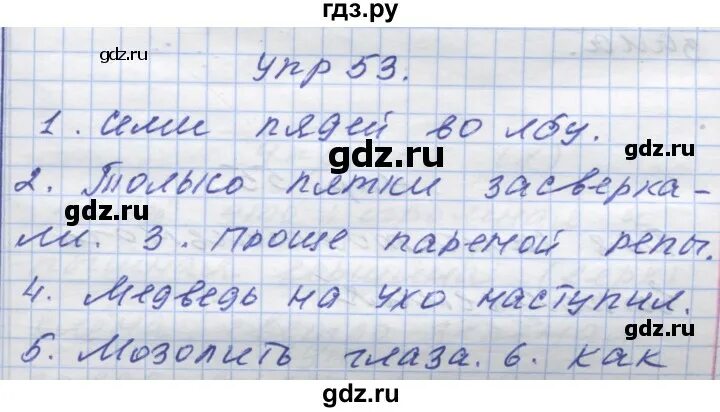 гдз.ру
gdz.ru
gdz.ru
упр 53.
1. семи пядей во лбу.
gdz.ru
2. Только пятки засверка-
gdz.ru
ли. 3. Проще пареной репы.
4. Медведь на ухо наступил.
gdz.ru
5. Мозолить глаза. 6. как
gdz.ru